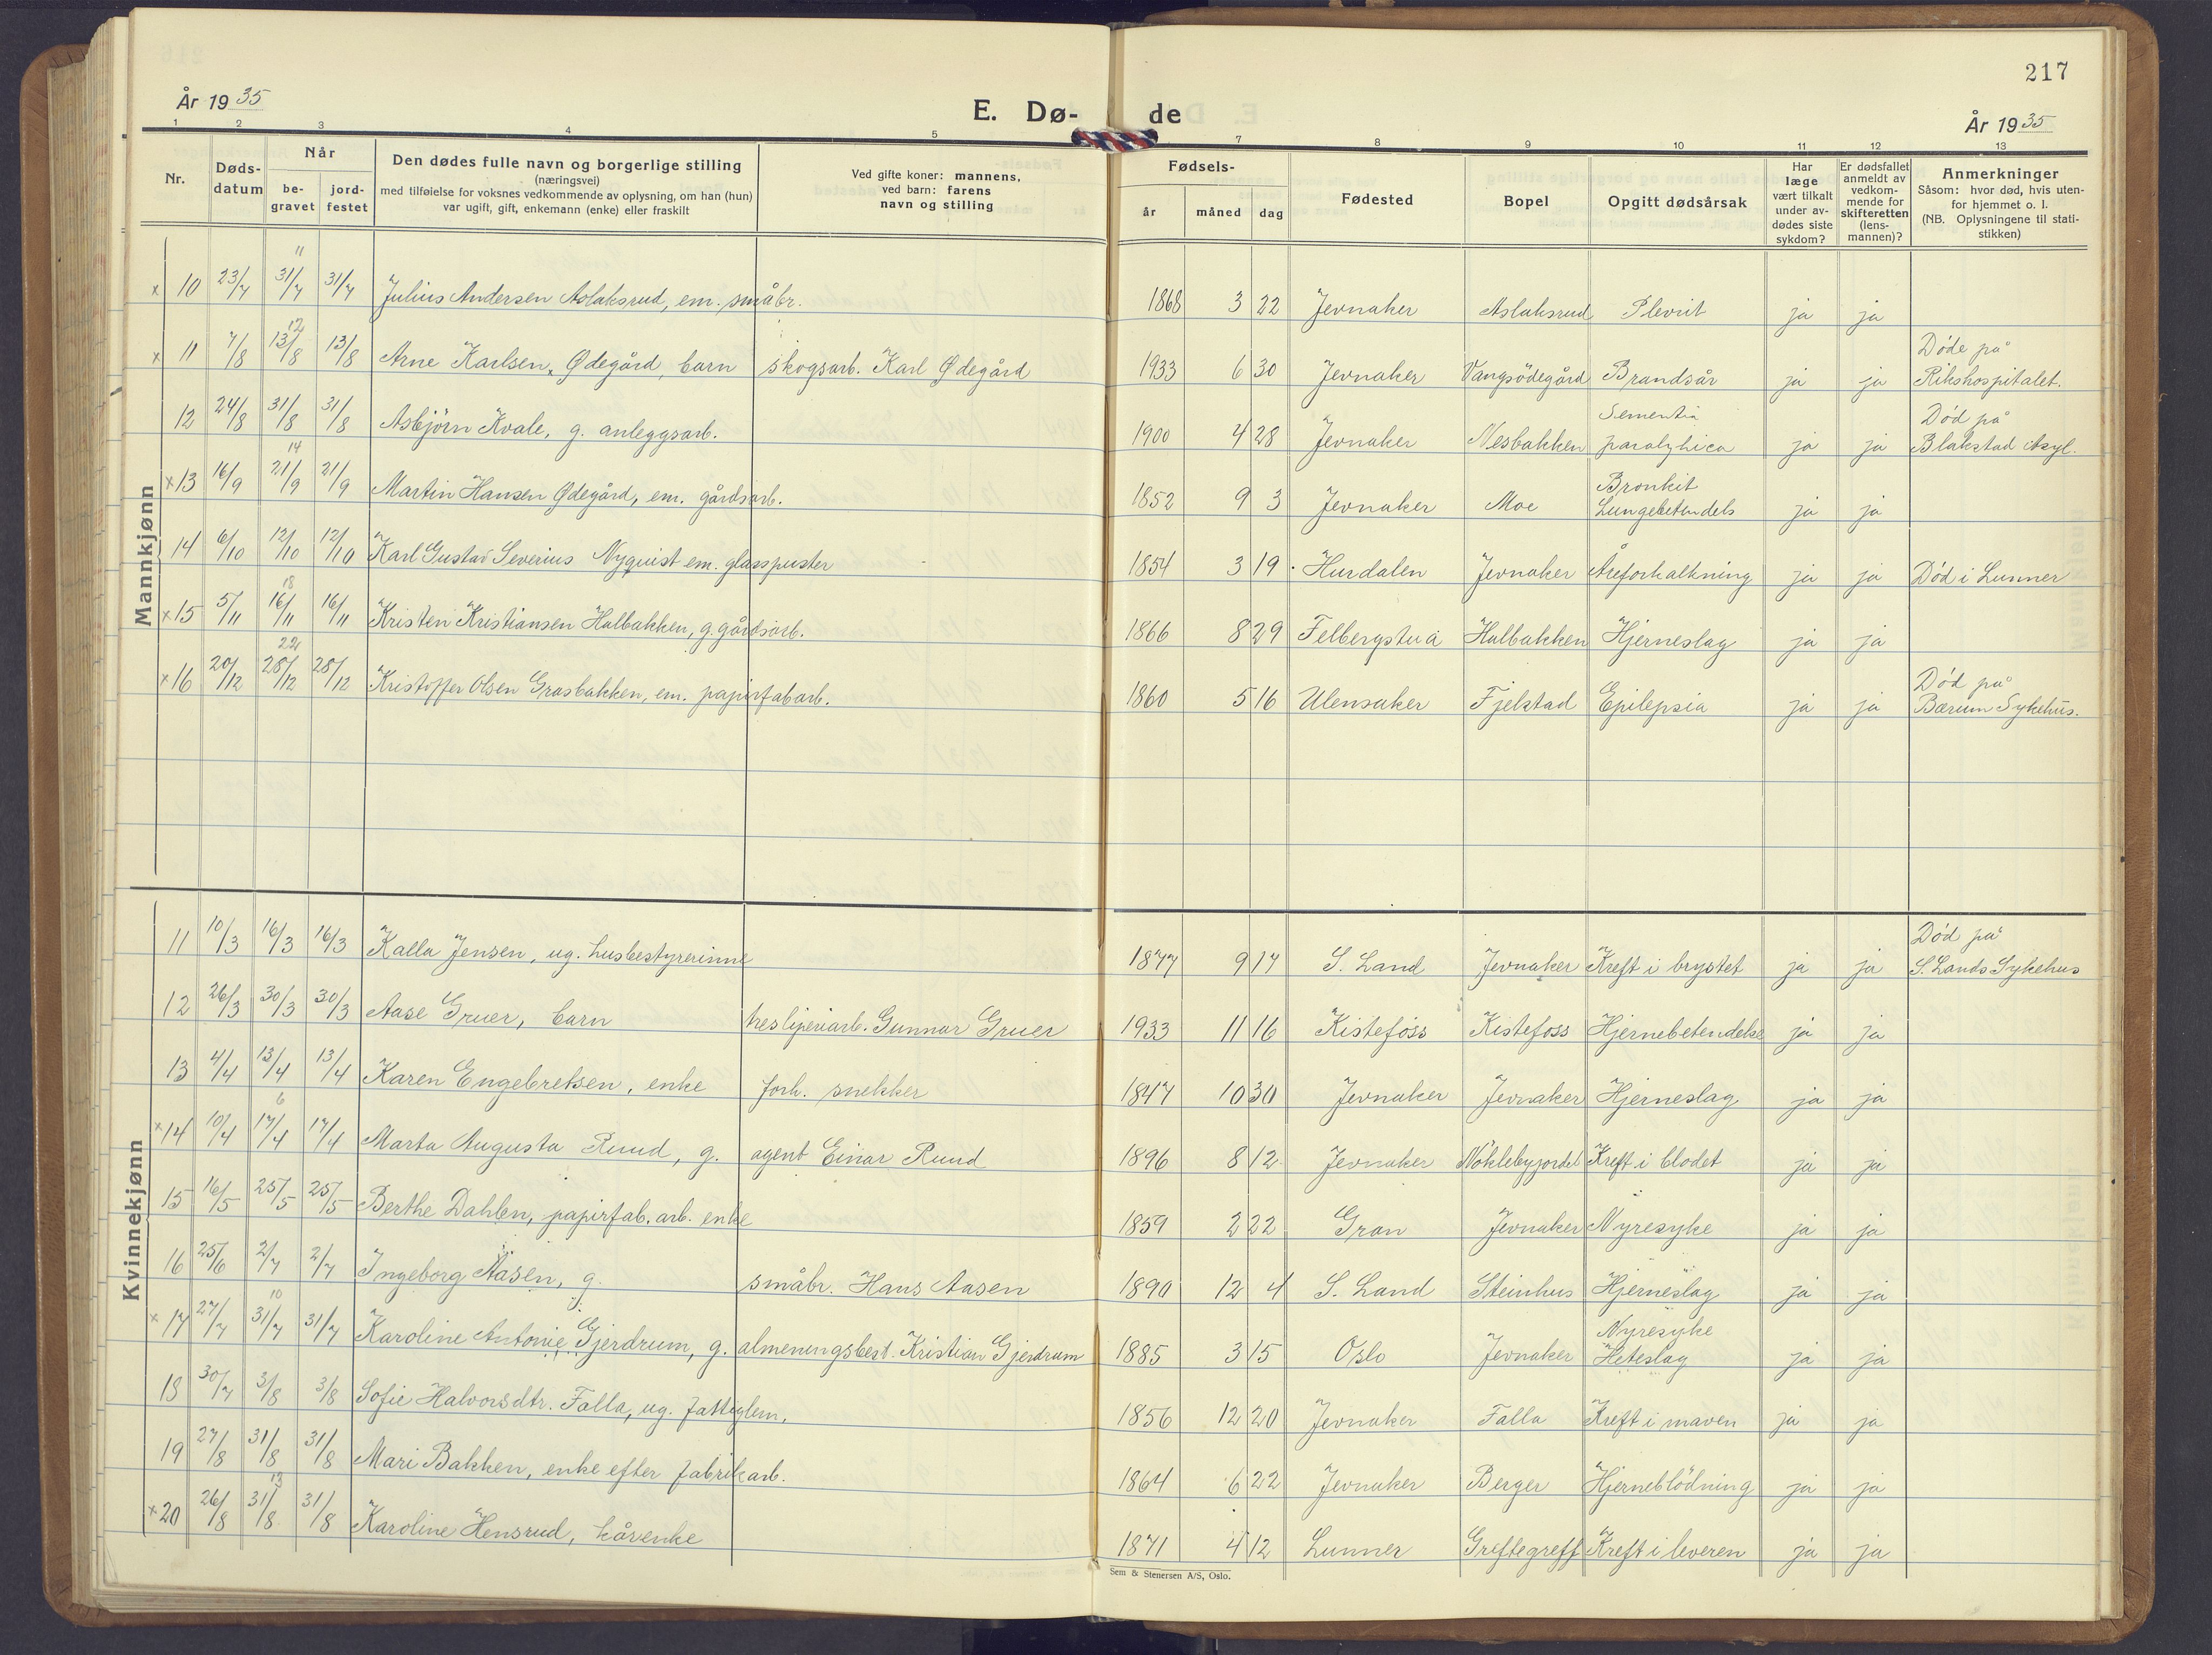 217
År 1935
E. Dø-de
År 1935
1 2 3 4 5 7 8 9 10 11 12 13
Nr.
Døds-datum
Når
be-gravet
jord-festet
Den dødes fulle navn og borgerlige stilling
(næringsvei)
med tilføielse for voksnes vedkommende av oplysning, om han (hun)
var ugift, gift, enkemann (enke) eller fraskilt
Ved gifte koner: mannens,
ved barn: farens
navn og stilling
Fødsels-
år
måned
dag
Fødested
Bopel
Opgitt dødsårsak
Har
læge
vært tilkalt
under av-
dødes siste
sykdom?
Er dødsfallet
anmeldt av
vedkom-
mende for
skifteretten
(lens-
mannen)?
Anmerkninger
Såsom: hvor død, hvis uten-
for hjemmet o. l.
(NB. Oplysningene til stati-
stikken)
Mannkjønn
11
x 10 23/7 31/7 31/7 Julius Andersen Aslaksrud, em. småbr. 1868 3 22 Jevnaker Aslaksrud Plevrit ja ja
12
x 11 7/8 13/8 13/8 Arne Karlsen, Ødegård, barn skogsarb. Karl Ødegård 1933 6 30 Jevnaker Vangsödegård Brandsår ja ja Döde på Rikshospitalet.
12 24/8 31/8 31/8 Asbjörn Kvale, g. anleggsarb. 1900 4 28 Jevnaker Nesbakken Sementia paralytica ja ja Död på Blakstad Asyl.
14
x 13 16/9 21/9 21/9 Martin Hansen Ødegård, em. gårdsarb. 1852 9 3 Jevnaker Moe Bronkit Lungebetendels ja ja
14 6/10 12/10 12/10 Karl Gustav Severius Nyquist em. glasspuster 1854 3 19 Hurdalen Jevnaker Åreforkalkning ja ja Död i Lunner
18
x 15 5/11 16/11 16/11 Kristen Kristiansen Halbakken, g. gårdsarb. 1866 8 29 Felbergstua Halbakken Hjerneslag ja ja
22
x 16 20/12 28/12 28/12 Kristoffer Olsen Grasbakken, em. papirfabarb. 1860 5 16 Ulensaker Fjelstad Epilepsia ja ja Död på Bærum Sykehus.
Kvinnekjønn
11 10/3 16/3 16/3 Kalla Jensen, ug. husbestyrerinne 1877 9 17 S. Land Jevnaker Kreft i brystet ja ja Död på S. Lands Sykehus
12 26/3 30/3 30/3 Aase Gruer, barn tresliperiarb. Gunnar Gruer 1933 11 16 Kistefoss Kistefoss Hjernebetendelse ja ja
13 4/4 13/4 13/4 Karen Engebretsen, enke forh. snekker 1847 10 30 Jevnaker Jevnaker Hjerneslag ja ja
6
x 14 10/4 17/4 17/4 Marta Augusta Ruud, g. agent Einar Ruud 1896 8 12 Jevnaker Nöklebyjordet Kreft i blodet ja ja
15 16/5 25/5 25/5 Berthe Dahlen, papirfab. arb. enke 1859 2 22 Gran Jevnaker Nyresyke ja ja
16 25/6 2/7 2/7 Ingeborg Aasen, g. småbr. Hans Aasen 1890 12 4 S. Land Steinhus Hjerneslag ja ja
10
x 17 27/7 31/7 31/7 Karoline Antonie Gjerdrum, g. almenningsbest. Kristian Gjerdrum 1885 3 15 Oslo Jevnaker Nyresyke Heteslag ja ja
18 30/7 3/8 3/8 Sofie Halvorsdtr. Falla, ug. fattiglem. 1856 12 20 Jevnaker Falla Kreft i maven ja ja
19 27/8 31/8 31/8 Mari Bakken, enke efter fabrikarb. 1864 6 22 Jevnaker Berger Hjerneblödning ja ja
13
x 20 26/8 31/8 31/8 Karoline Hensrud, kårenke 1871 4 12 Lunner Greftegreff Kreft i leveren ja ja
Sem & Stenersen A/S, Oslo.